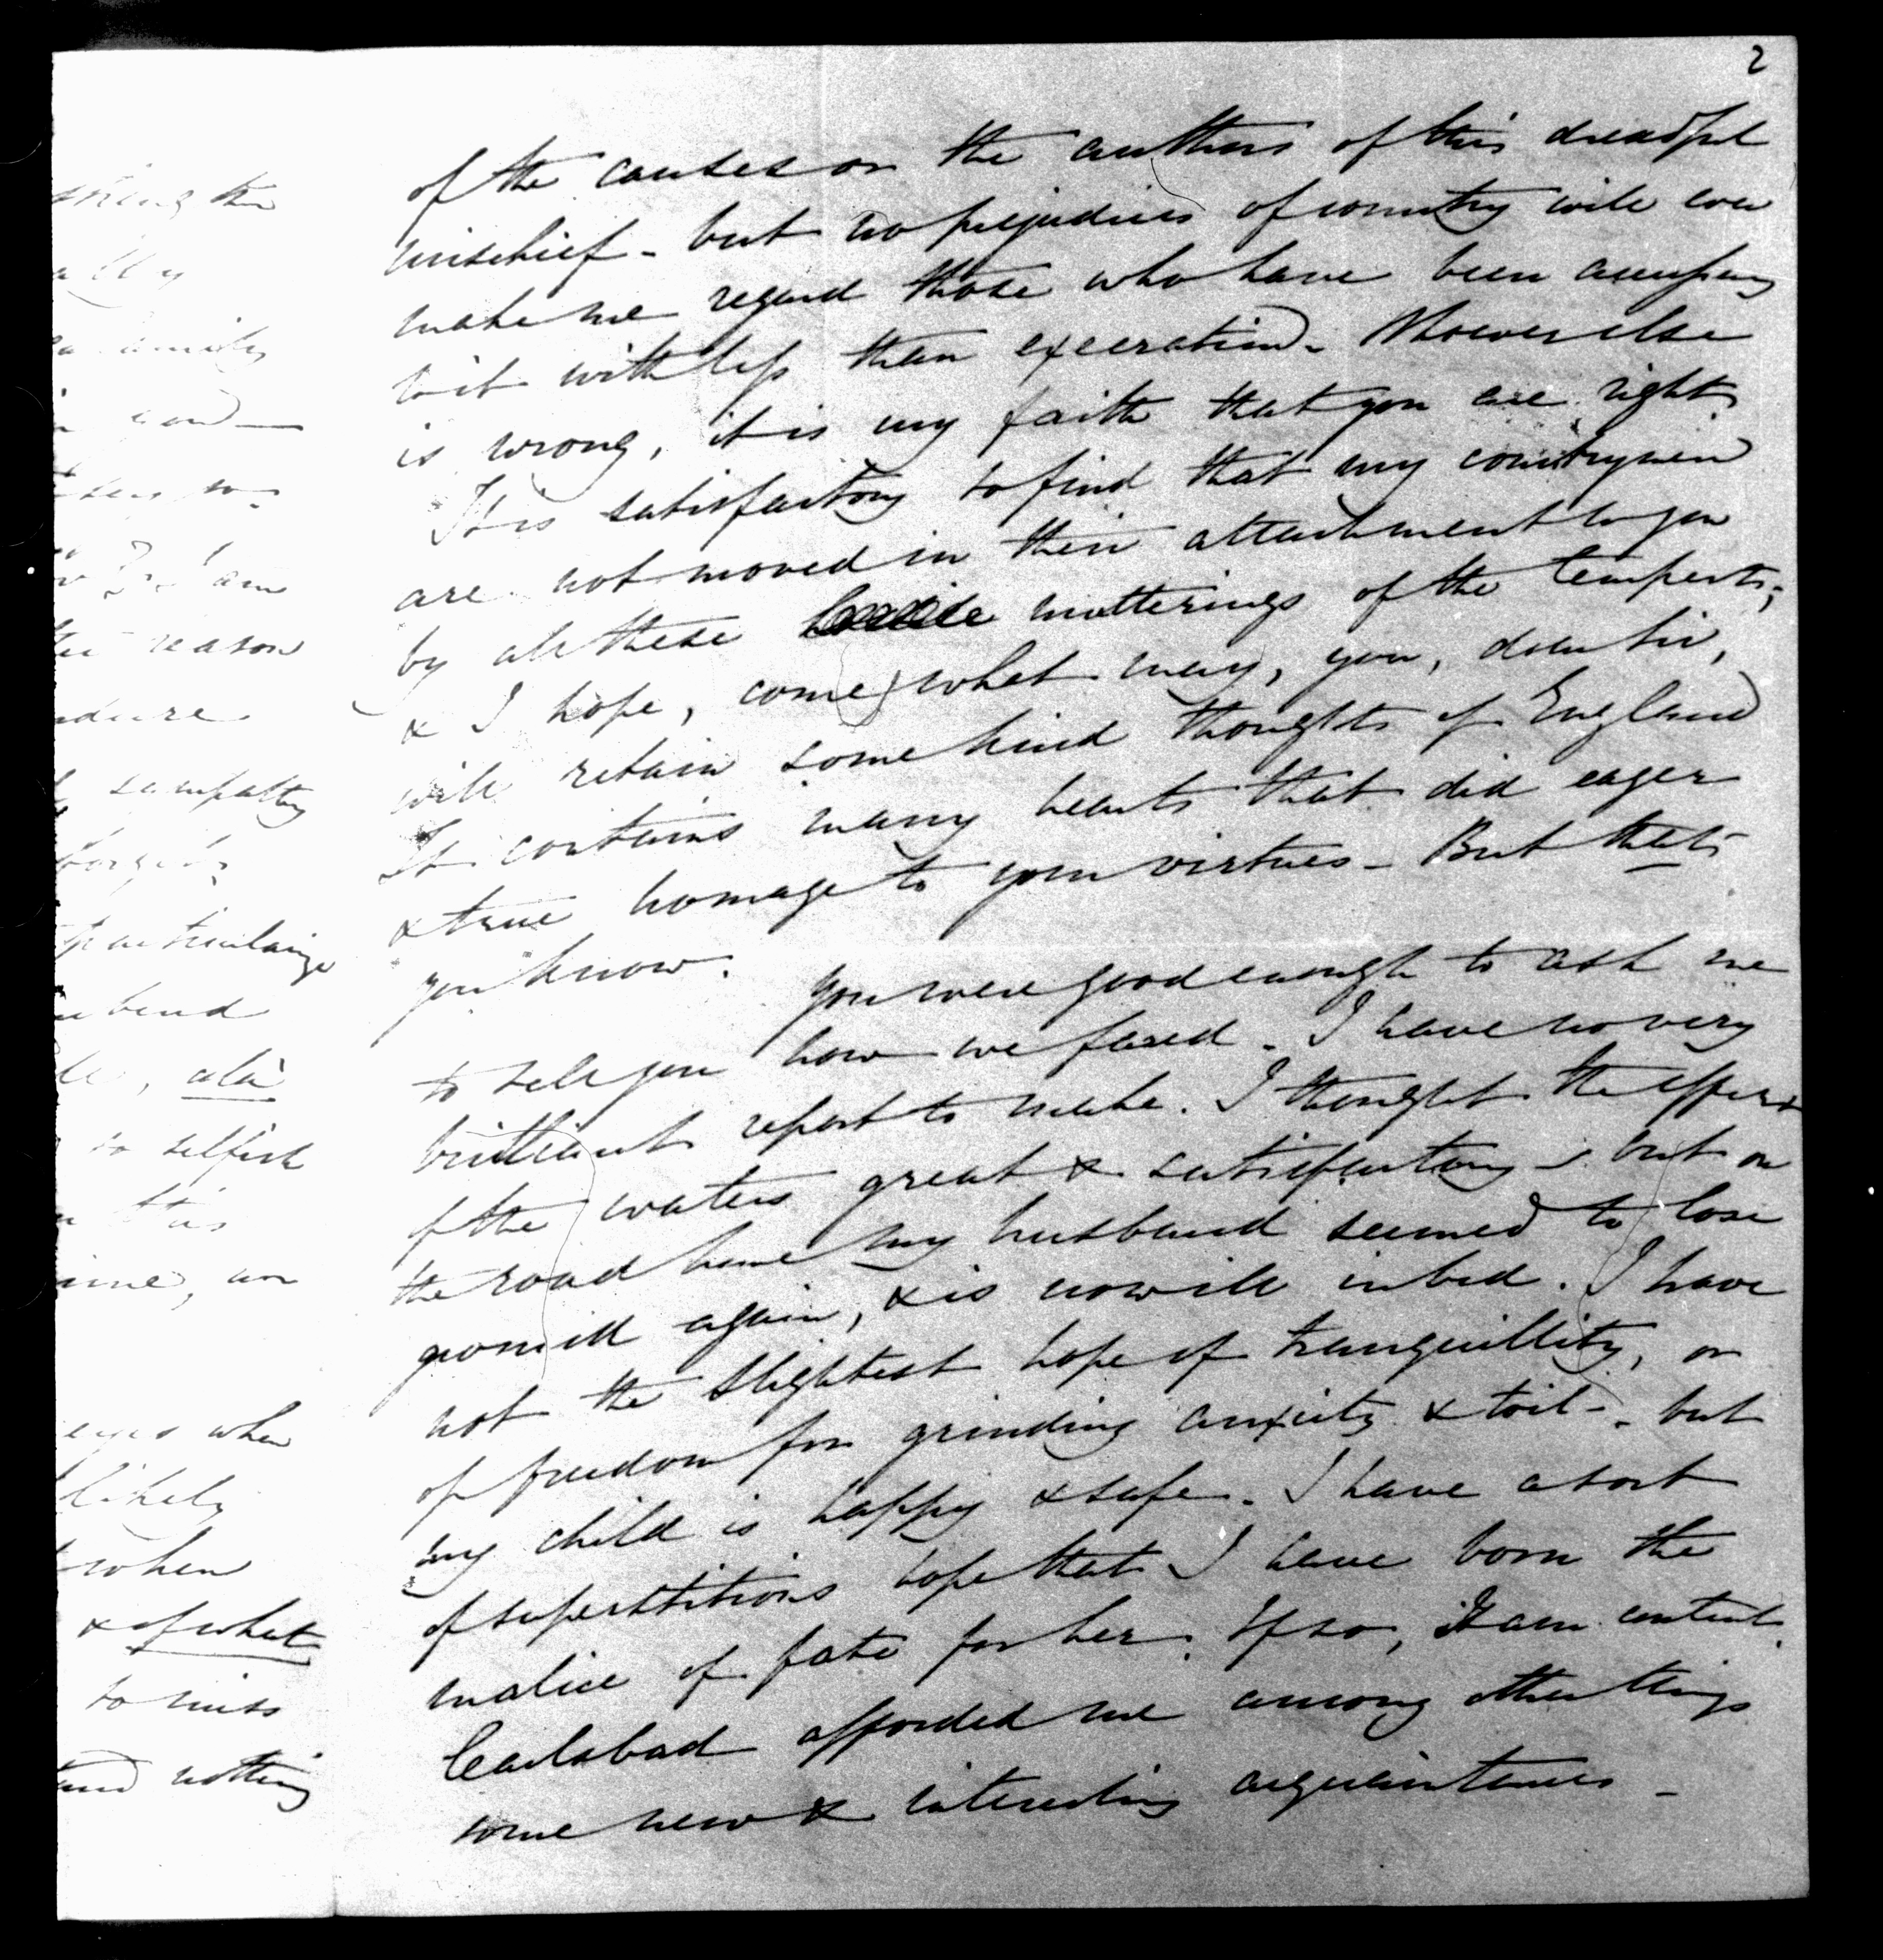 2
of the causes or the authors of this dreadful
mischief - but no prejudices of country will ever
make me regard those who have been accessory
to it with less than execration - Whoever else
is wrong, it is my faith that you are right.
It is satisfactory to find that my countrymen
are not moved in their attachment to you
by all these mutterings of the tempests;
& I hope, come what may, you, dear Sir,
will retain some kind thoughts of England
It contains many hearts that did eager
& true homage to your virtues - But that
you know. You were good enough to ask me
to tell you how we fared. I have no very
brilliant report to make. I thought the effect
of the waters great & satisfactory - but on
the road home my husband seemed to lose
ground again, & is now ill in bed. I have
not the slightest hope of tranquillity, or
of freedom for grinding anxiety & toil - but
my child is happy & safe. I have a sort
of superstitious hope that I have born the
malice of fate for her. If so, I am content.
Carlsbad afforded me among other things
some new & interesting acquaintances -
reason
sympathy
particularize
bend
ala
so selfish
eyes when
likely
when
& of what
to miss
and nothing